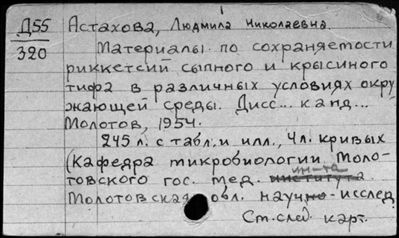 Д55 Астахова, Людмила Николаевна.
320
Материалы по сохраняемости
риккетсий сыпного и крысиного
тифа в различных условиях окру
жающей среды. Дисс... канд...
Молотов, 1954.
245 л. с табл. и илл., 4 л. кривых
(Кафедра микробиологии Моло-
ин-та
товского гос. мед. института.
Молотовская обл. научно-исслед.
Ст. след. карт.